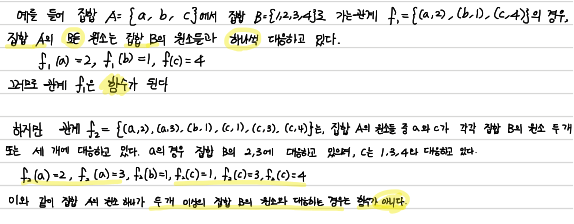 예를 들어 집합 A={a, b, c}에서 집합 B={1,2,3,4}로 가는관계 f₁={(a,2), (b,1), (c,4)}의 경우,
집합 A의 모든 원소는 집합 B의 원소들과 하나씩 대응하고 있다.
f₁(a)=2, f₁(b)=1, f(c)=4
그러므로 관계 f₁은 함수가 된다
하지만 관계 f₂={(a,2), (a,3), (b,1), (c,1), (c,3), (c,4)}는, 집합 A의 원소들 중 a와 c가 각각 집합 B의 원소 두개
또는 세 개에 대응하고 있다. a의 경우 집합 B의 2,3에 대응하고 있으며, c는 1,3,4와 대응하고 있다.
f₂(a)=2, f₂(a)=3, f₂(b)=1, f₂(c)=1, f₂(c)=3, f₂(c)=4
이와 같이 집합 A의 원소 하나가 두 개 이상의 집합 B의 원소와 대응하는 경우는 함수가 아니다.